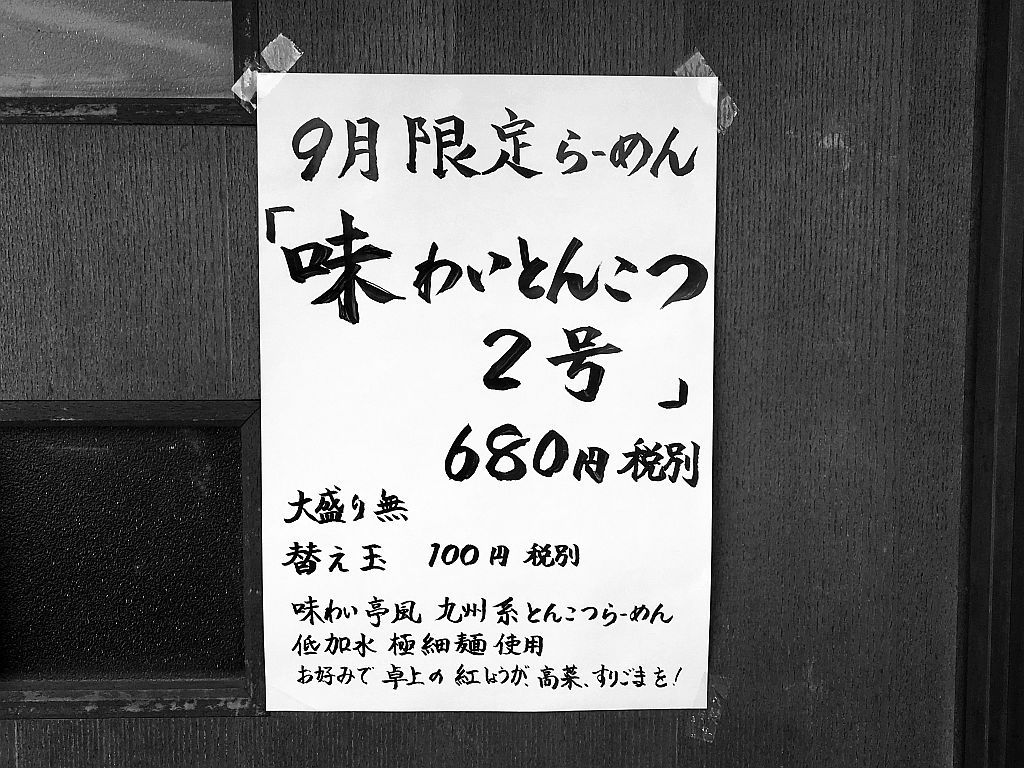 9月限定らーめん
「味わいとんこつ
2号」
680円税別
大盛り無
替え玉 100円 税別
味わい亭風 九州系とんこつらーめん
低加水 極細麺 使用
お好みで 卓上の 紅しょうが、高菜、すりごまを!